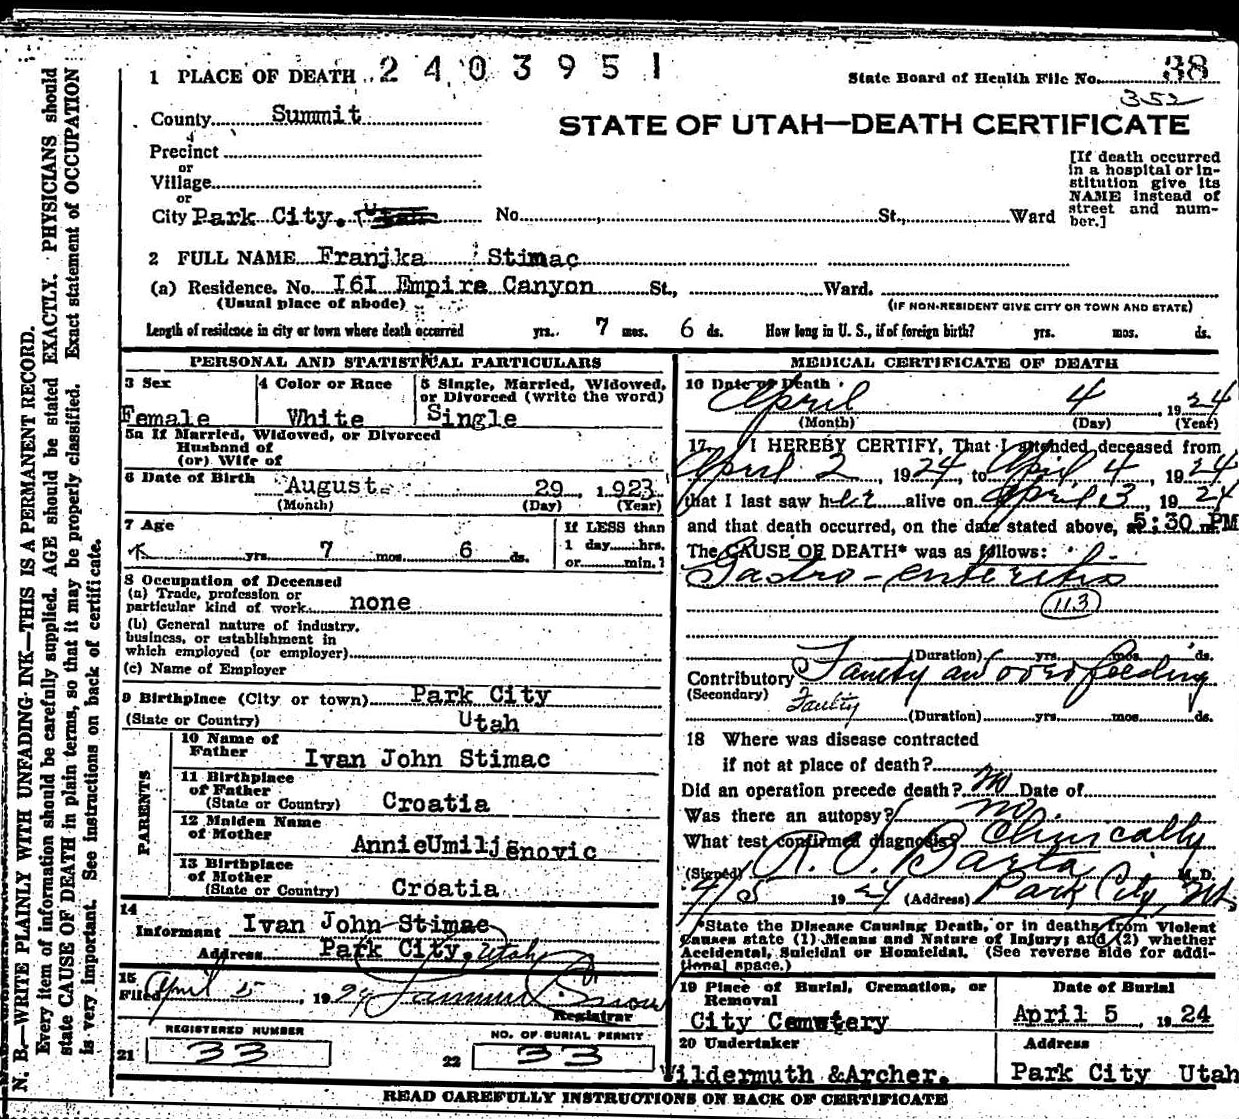 1 PLACE OF DEATH 2403951
State Board of Health File No. 38
352
County Summit
STATE OF UTAH—DEATH CERTIFICATE
Precinct
or
Village
or
City Park City. Utah No. St., Ward
[If death occurred
in a hospital or in-
stitution give its
NAME instead of
street and num-
ber.]
2 FULL NAME Franjka Stimac
(a) Residence. No. I6I Empire Canyon St., Ward.
(Usual place of abode) (IF NON-RESIDENT GIVE CITY OR TOWN AND STATE)
Length of residence in city or town where death occurred yrs. 7 mos. 6 ds. How long in U. S., if of foreign birth? yrs. mos. ds.
PERSONAL AND STATISTICAL PARTICULARS
3 Sex
Female
4 Color or Race
White
5 Single, Married, Widowed,
or Divorced (write the word)
Single
5a If Married, Widowed, or Divorced
Husband of
(or) Wife of
6 Date of Birth August 29, 1923
(Month) (Day) (Year)
7 Age
yrs. 7 mos. 6 ds.
If LESS than
1 day......hrs.
or......min.?
8 Occupation of Deceased
(a) Trade, profession or
particular kind of work none
(b) General nature of industry,
business, or establishment in
which employed (or employer)
(c) Name of Employer
9 Birthplace (City or town) Park City
(State or Country) Utah
PARENTS
10 Name of
Father Ivan John Stimac
11 Birthplace
of Father
(State or Country) Croatia
12 Maiden Name
of Mother AnnieUmiljenovic
13 Birthplace
of Mother
(State or Country) Croatia
14
Informant Ivan John Stimac
Address Park City, Utah
15
Filed April 5, 1924
Registrar
REGISTERED NUMBER
21 33
NO. OF BURIAL PERMIT
22 33
MEDICAL CERTIFICATE OF DEATH
16 Date of Death
April 4, 1924
(Month) (Day) (Year)
17 I HEREBY CERTIFY, That I attended deceased from
April 2, 1924, to April 4, 1924
that I last saw her alive on April 3, 1924
and that death occurred, on the date stated above, at 5:30 PM
The CAUSE OF DEATH* was as follows:
Gastro-enteritis
113
(Duration) yrs. mos. ds.
Contributory Faulty and over feeding
(Secondary) Faulty
(Duration) yrs. mos. ds.
18 Where was disease contracted
if not at place of death?
Did an operation precede death? No Date of
Was there an autopsy? no
What test confirmed diagnosis? Clinically
(Signed) Barta M.D.
4/5 1924 (Address) Park City, Ut.
*State the Disease Causing Death, or in deaths from Violent
Causes state (1) Means and Nature of Injury; and (2) whether
Accidental, Suicidal or Homicidal. (See reverse side for addi-
tional space.)
19 Place of Burial, Cremation, or
Removal
City Cemetery
Date of Burial
April 5, 1924
20 Undertaker
Wildermuth &Archer.
Address
Park City Utah
READ CAREFULLY INSTRUCTIONS ON BACK OF CERTIFICATE
N. B.—WRITE PLAINLY WITH UNFADING INK—THIS IS A PERMANENT RECORD.
Every item of information should be carefully supplied. AGE should be stated EXACTLY. PHYSICIANS should
state CAUSE OF DEATH in plain terms, so that it may be properly classified. Exact statement of OCCUPATION
is very important. See instructions on back of certificate.